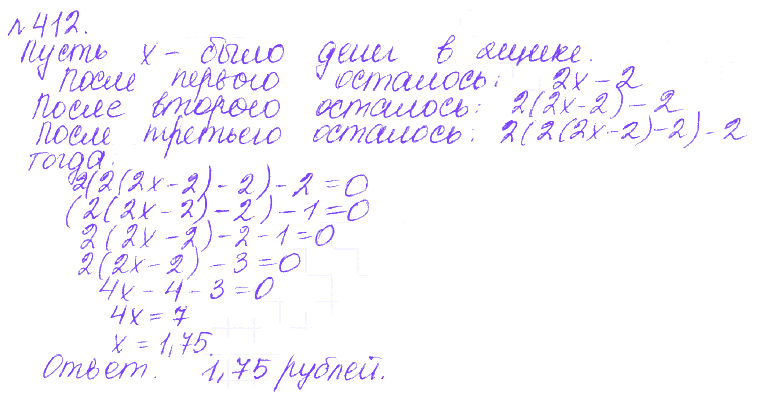 №412.
Пусть x – было денег в ящике.
После первого осталось: 2x – 2
После второго осталось: 2(2x-2) – 2
После третьего осталось: 2(2(2x-2)-2) – 2
Тогда:
2(2(2x-2)-2)-2=0
(2(2x-2)-2)-1=0
2(2x-2)-2-1=0
2(2x-2)-3=0
4x-4-3=0
4x=7
x=1,75.
Ответ. 1,75 рублей.